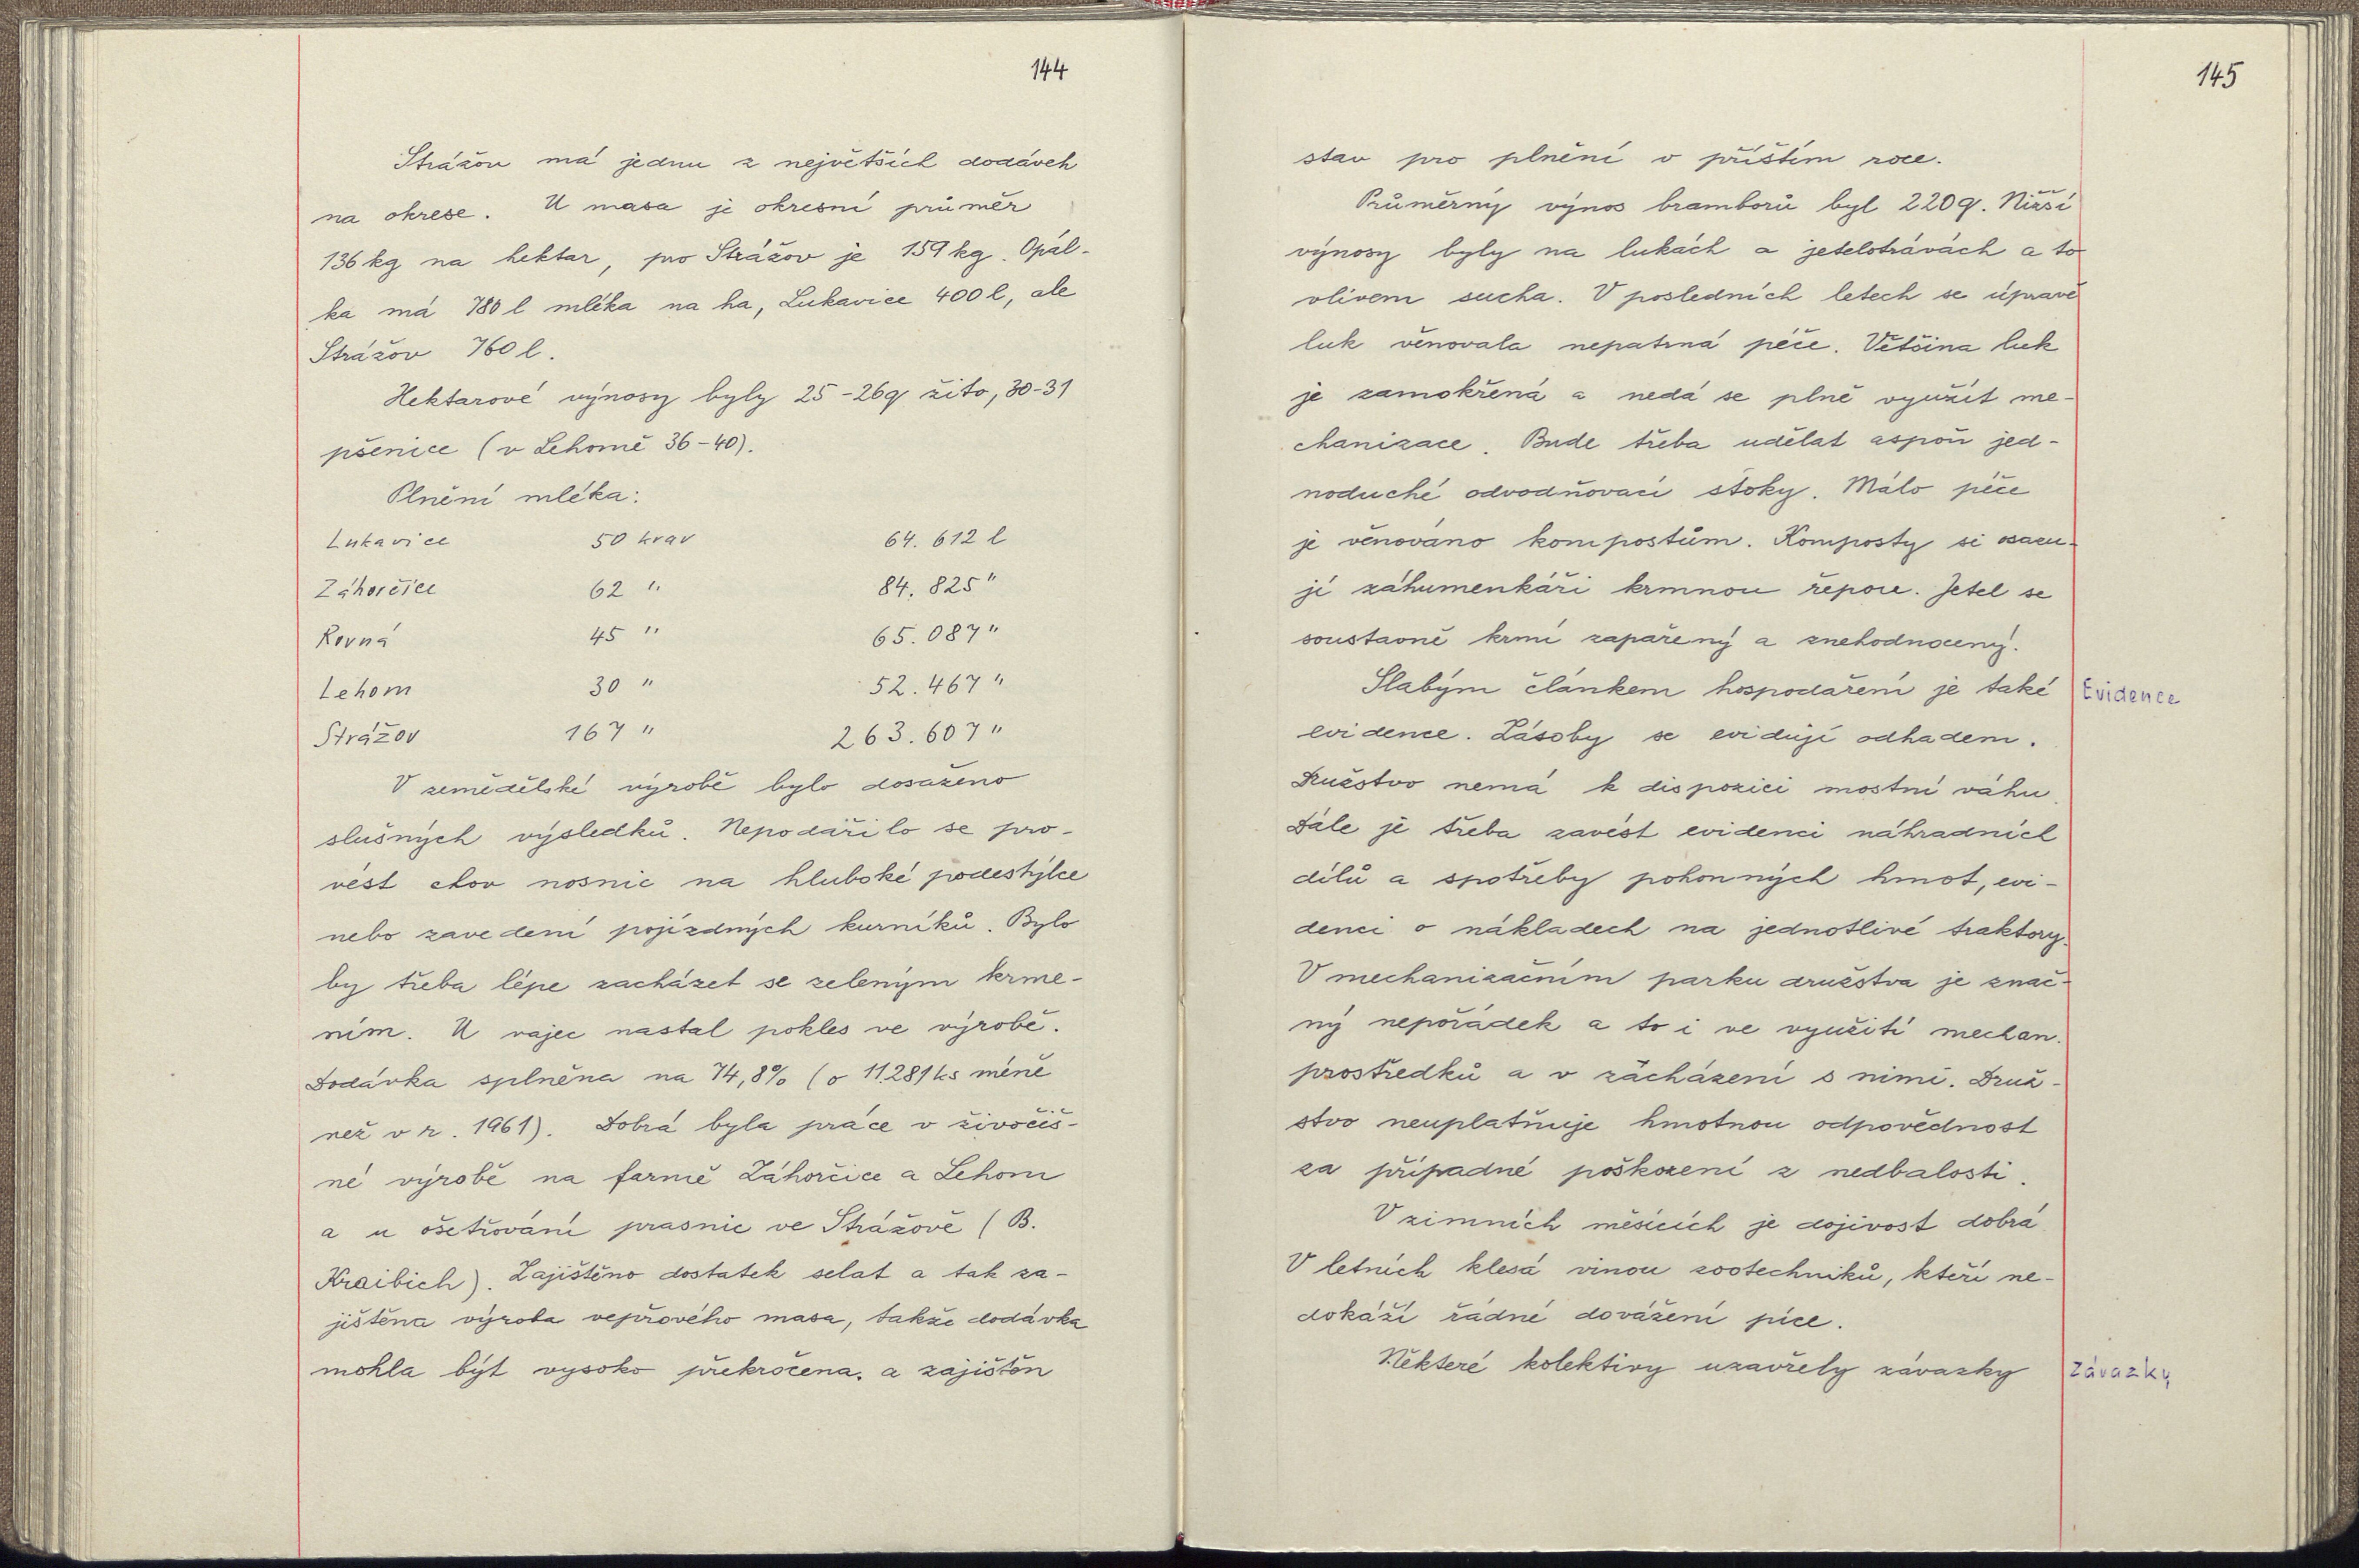 144
Strážov má jednu z největších dodávek
na okrese. U masa je okresní průměr
136 kg na hektar, pro Strážov je 159 kg. Opál-
ka má 780 l mléka na ha, Lukavice 400 l, ale
Strážov 760 l.
Hektarové výnosy byly 25-26q žito, 30-31
pšenice (v Lehomě 36-40).
Plnění mléka:
Lukavice 50 krav 64.612 l
Záhorčice 62 " 84.825 "
Rovná 45 " 65.087 "
Lehom 30 " 52.467 "
Strážov 167 " 263.607 "
V zemědělské výrobě bylo dosaženo
slušných výsledků. Nepodařilo se pro-
vést chov nosnic na hluboké podestýlce
nebo zavedení pojízdných kurníků. Bylo
by třeba lépe zacházet se zeleným krme-
ním. U vajec nastal pokles ve výrobě.
Dodávka splněna na 74,8% (o 11.281 ks méně
než v r. 1961). Dobrá byla práce v živočiš-
né výrobě na farmě Záhorčice a Lehom
a u ošetřování prasnic ve Strážově (B.
Kraibich). Zajištěno dostatek selat a tak za-
jištěna výroba vepřového masa, takže dodávka
mohla být vysoko překročena. a zajištěn
145
stav pro plnění v příštím roce.
Průměrný výnos bramborů byl 220q. Nižší
výnosy byly na lukách a jetelotrávách a to
vlivem sucha. V posledních letech se úpravě
luk věnovala nepatrná péče. Většina luk
je zamokřená a nedá se plně využít me-
chanizace. Bude třeba udělat aspoň jed-
noduché odvodňovací stoky. Málo péče
je věnováno kompostům. Komposty si osazu-
jí záhumenkáři krmnou řepou. Jetel se
soustavně krmí zapařený a znehodnocený.
Slabým článkem hospodaření je také
Evidence
evidence. Zásoby se evidují odhadem.
Družstvo nemá k dispozici mostní váhu.
Dále je třeba zavést evidenci náhradních
dílů a spotřeby pohonných hmot, evi-
denci o nákladech na jednotlivé traktory.
V mechanizačním parku družstva je znač-
ný nepořádek a to i ve využití mechan.
prostředků a v zacházení s nimi. Druž-
stvo neuplatňuje hmotnou odpovědnost
za případné poškození z nedbalosti.
V zimních měsících je dojivost dobrá
V letních klesá vinou zootechniků, kteří ne-
dokáží řádné dovážení píce.
Některé kolektivy uzavřely závazky
Závazky